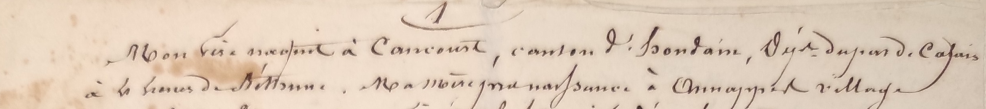 1
Mon Père naquit à Cancourt, canton d'houdain, Dépt. du pas de Calais
à 4 lieues de Béthune. Ma Mère prit naissance à Annappes village